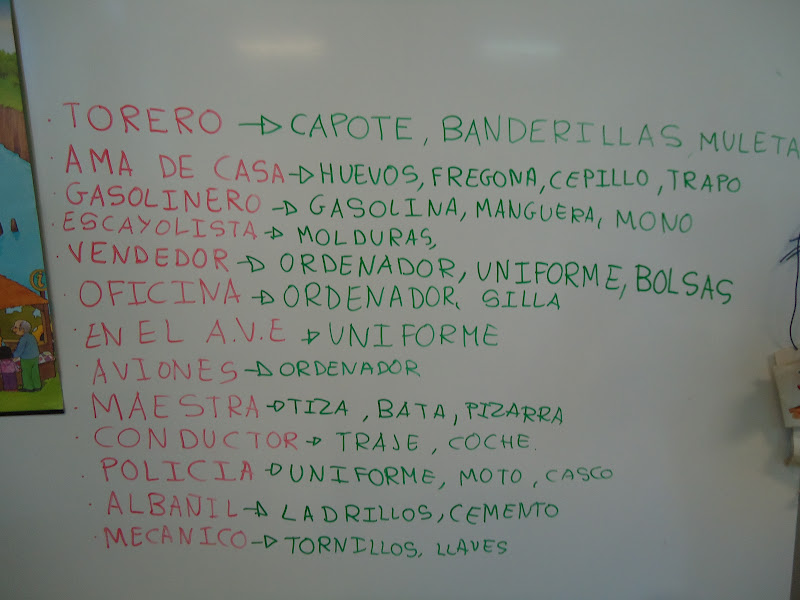 · TORERO → CAPOTE, BANDERILLAS, MULETA
AMA DE CASA → HUEVOS, FREGONA, CEPILLO, TRAPO
· GASOLINERO → GASOLINA, MANGUERA, MONO
· ESCAYOLISTA → MOLDURAS,
· VENDEDOR → ORDENADOR, UNIFORME, BOLSAS
· OFICINA → ORDENADOR, SILLA
· EN EL A.V.E → UNIFORME
· AVIONES → ORDENADOR
· MAESTRA → TIZA, BATA, PIZARRA
· CONDUCTOR → TRAJE, COCHE.
· POLICIA → UNIFORME, MOTO, CASCO
· ALBAÑIL → LADRILLOS, CEMENTO
· MECANICO → TORNILLOS, LLAVES